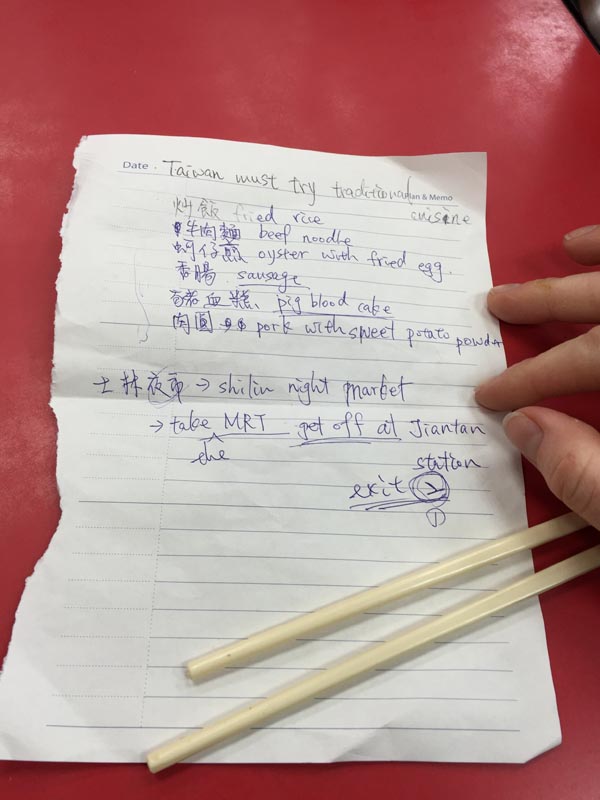 Date . Taiwan must try traditional an & Memo
炒飯 fried rice cuisine
牛肉麵 beef noodle
蚵仔煎 oyster with fried egg.
香腸 sausage
血糕 pig blood cake
肉圓 pork with sweet potato powder
士林夜市 → shilin night market
→ take MRT get off at Jiantan
the station
exit
①